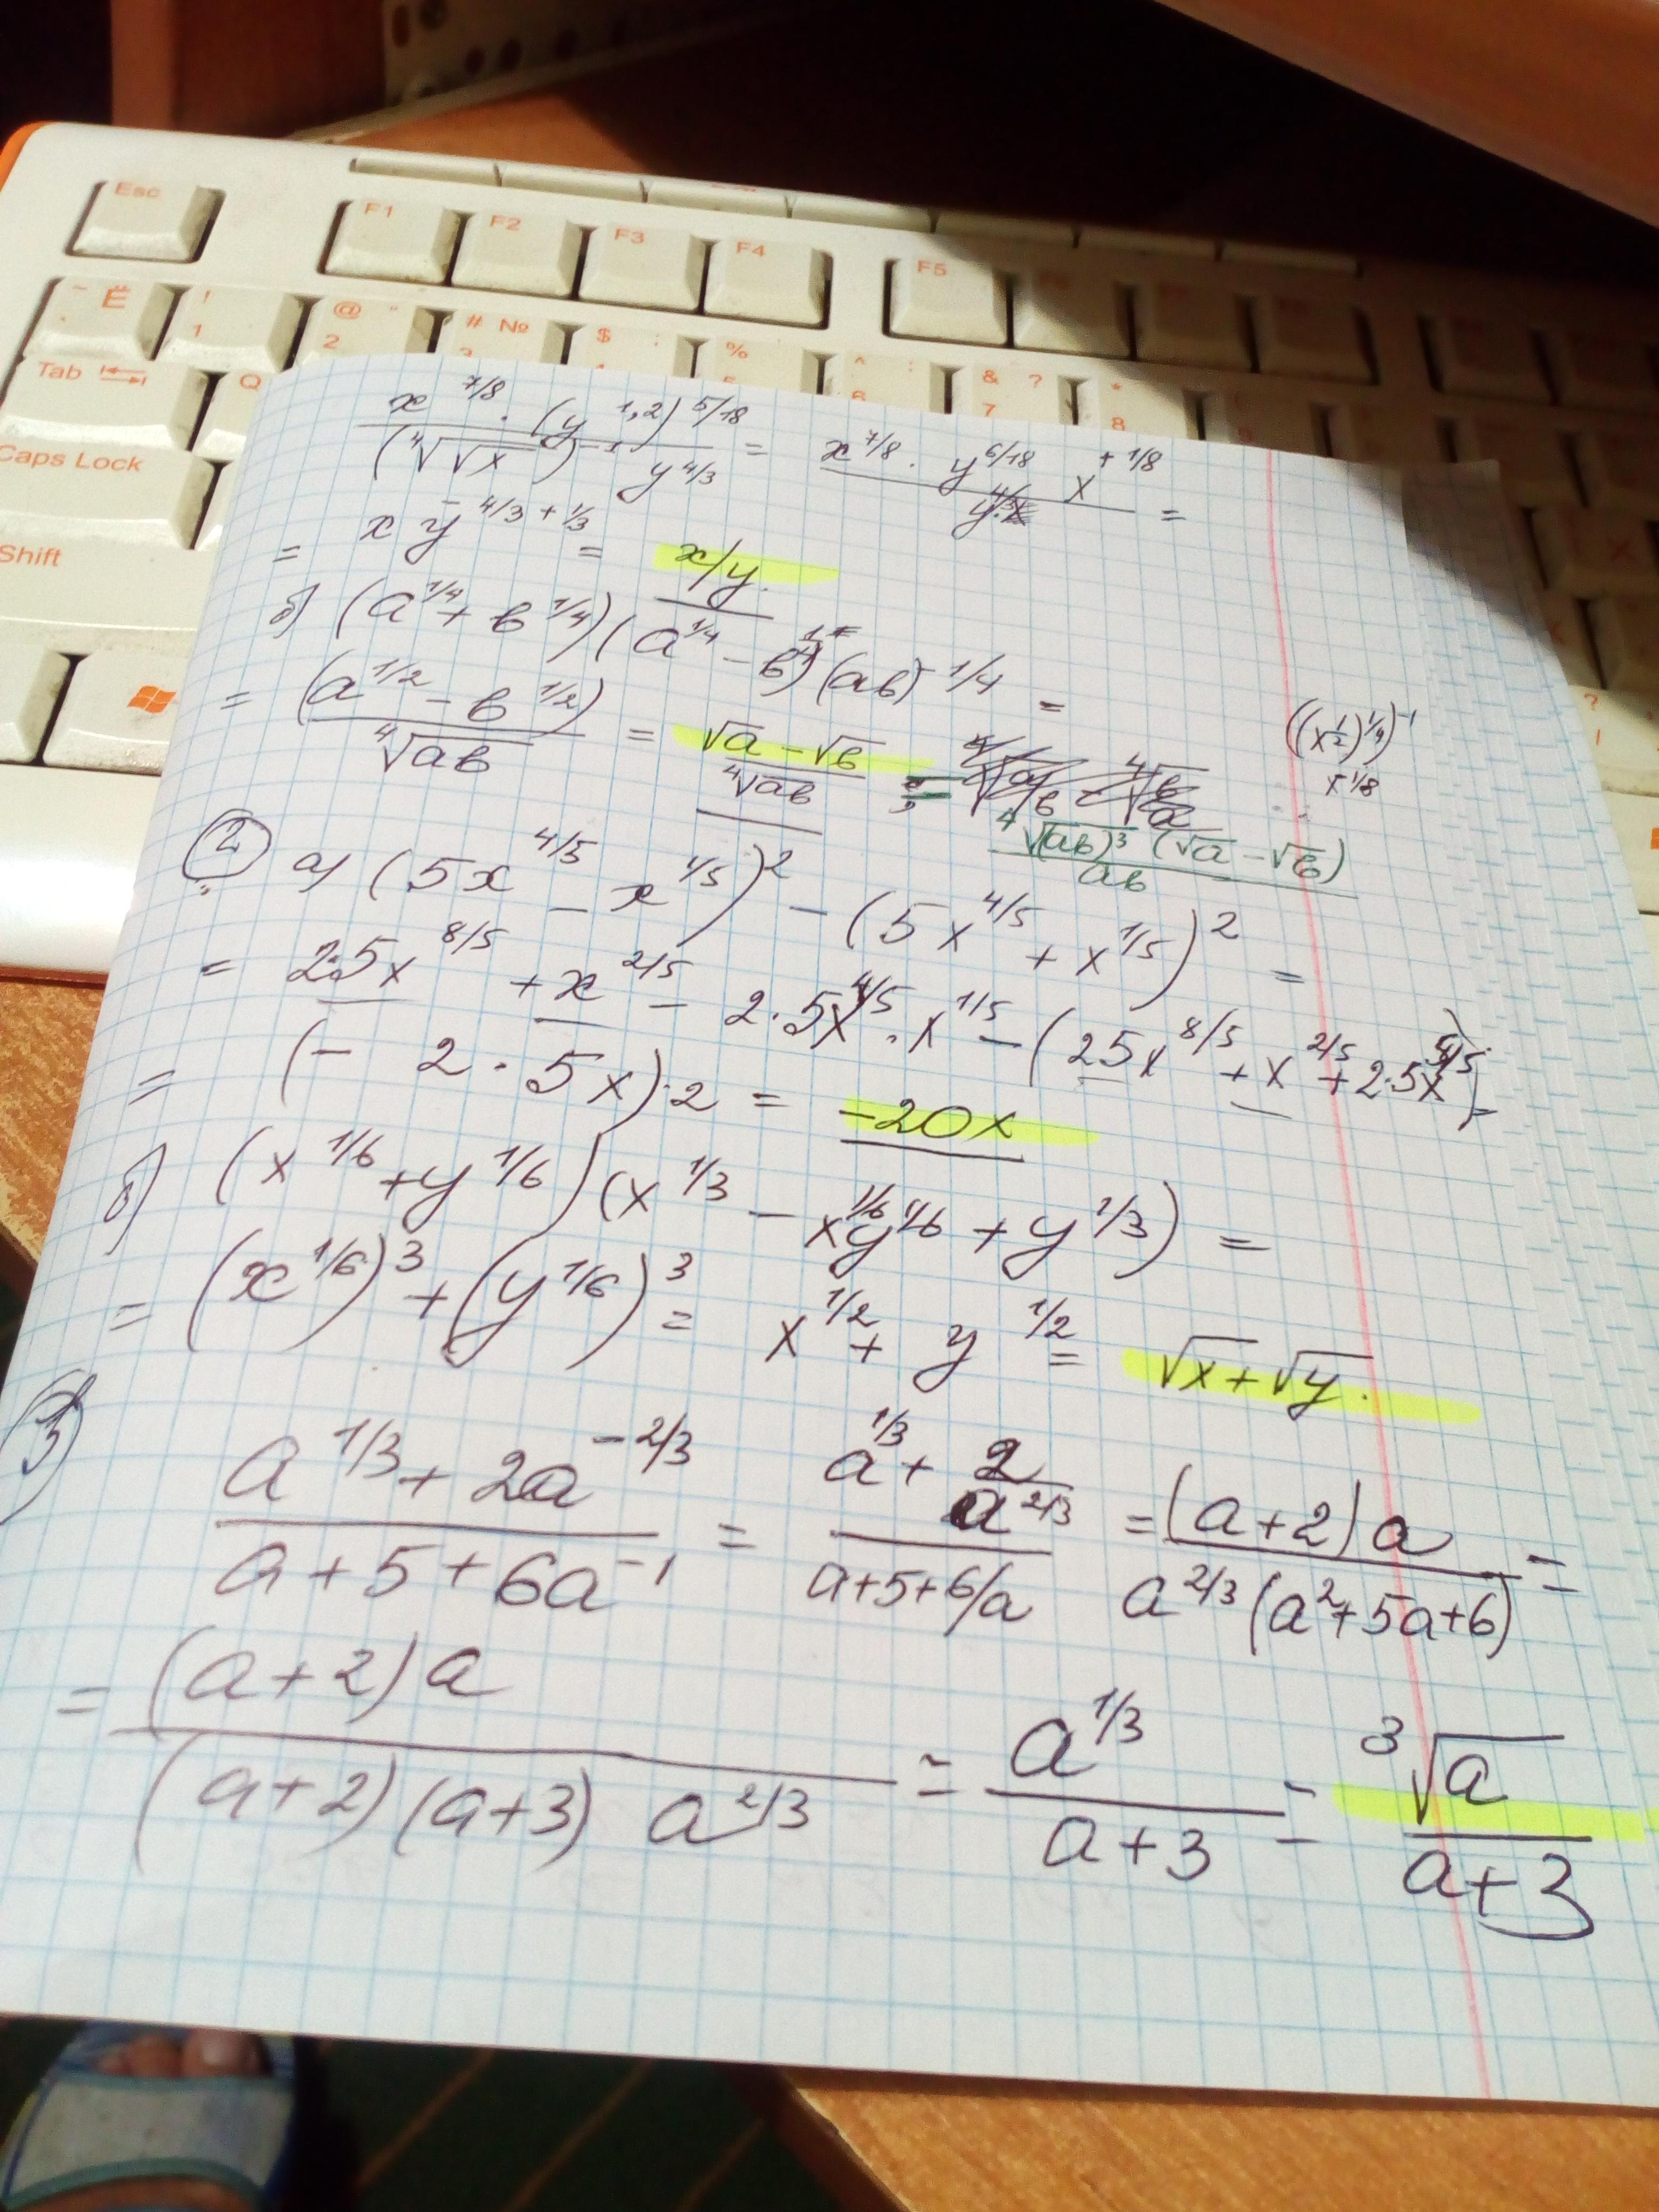 Esc F1 F2 F3 F4 F5
~ Ё ! 1 @ " 2 # № 3 $ ; % : ^ : 6 & ? 7 * 8
Tab Q
Caps Lock
Shift
x^{7/8} · (y^{1,2})^{5/18} / (⁴√√x)^{-1} y^{4/3} = x^{7/8} · y^{6/18} x^{+1/8} / y^{4/3} =
= x y^{-4/3+1/3} = x/y.
б) (a^{1/4} + b^{1/4})(a^{1/4} - b^{1/4})(ab)^{-1/4} =
= (a^{1/2} - b^{1/2}) / ⁴√ab = √a - √b / ⁴√ab =
((x^{1/2})^{1/4})^{-1}
x^{1/8}
⁴√(ab)³ (√a - √b) / ab
2 a) (5x^{4/5} - x^{1/5})² - (5x^{4/5} + x^{1/5})² =
= 25x^{8/5} + x^{2/5} - 2·5x^{4/5}·x^{1/5} - (25x^{8/5} + x^{2/5} + 2·5x^{5/5}) =
= (- 2·5x)·2 = -20x
б) (x^{1/6} + y^{1/6})(x^{1/3} - x^{1/6}y^{1/6} + y^{1/3}) =
= (x^{1/6})³ + (y^{1/6})³ = x^{1/2} + y^{1/2} = √x + √y.
3
a^{1/3} + 2a^{-2/3} / a + 5 + 6a^{-1} = a^{1/3} + 2/a^{2/3} / a+5+6/a = (a+2)a / a^{2/3}(a²+5a+6) =
= (a+2)a / (a+2)(a+3) a^{2/3} = a^{1/3} / a+3 = ³√a / a+3